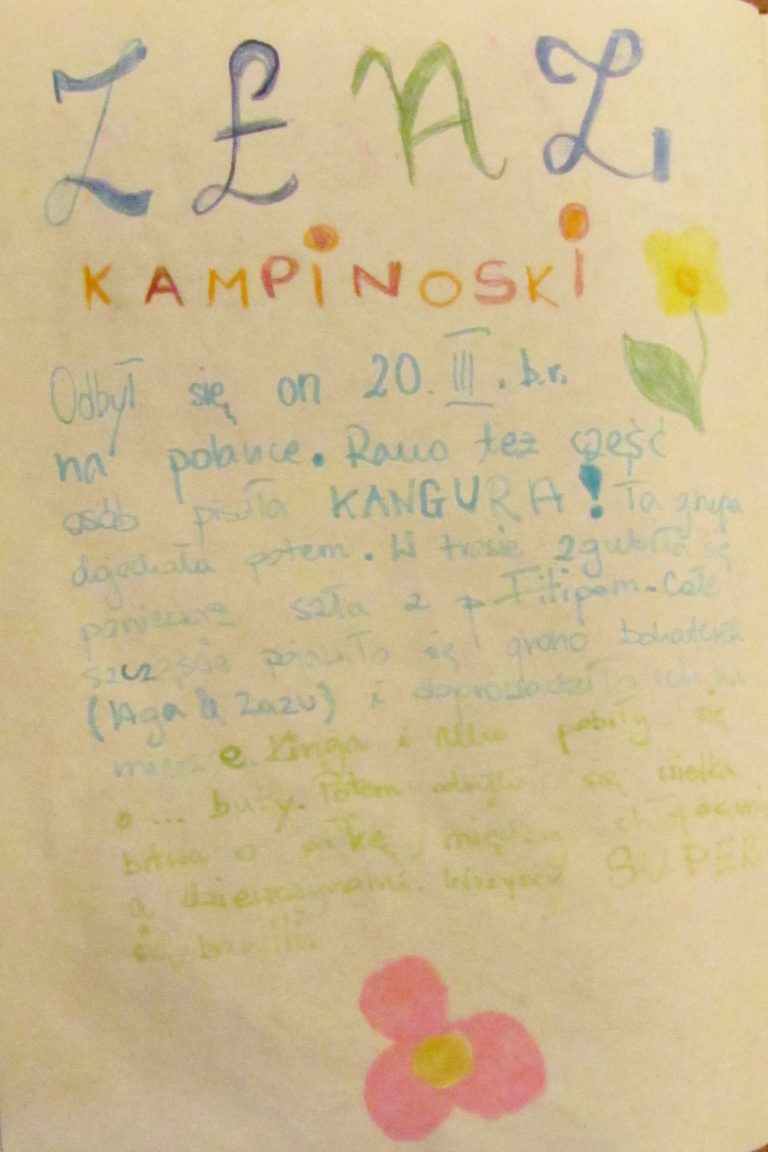 ZŁAZ
KAMPINOSKI
Odbył się on 20. III. b.r.
na polance. Rano też część
osób pisała KANGURA! Ta grupa
dojechała potem. W trasie zgubiła się
ponieważ szła z p. Filipem. Całe
szczęście pojawiło się grono bohaterek
(Aga & Zazu) i doprowadziło ich na
miejsce. Kinga i pobiły się
o ... buty. Potem odbyła się wielka
bitwa o piłkę, między chłopakami
a dziewczynami. Wszyscy SUPER
się bawili.